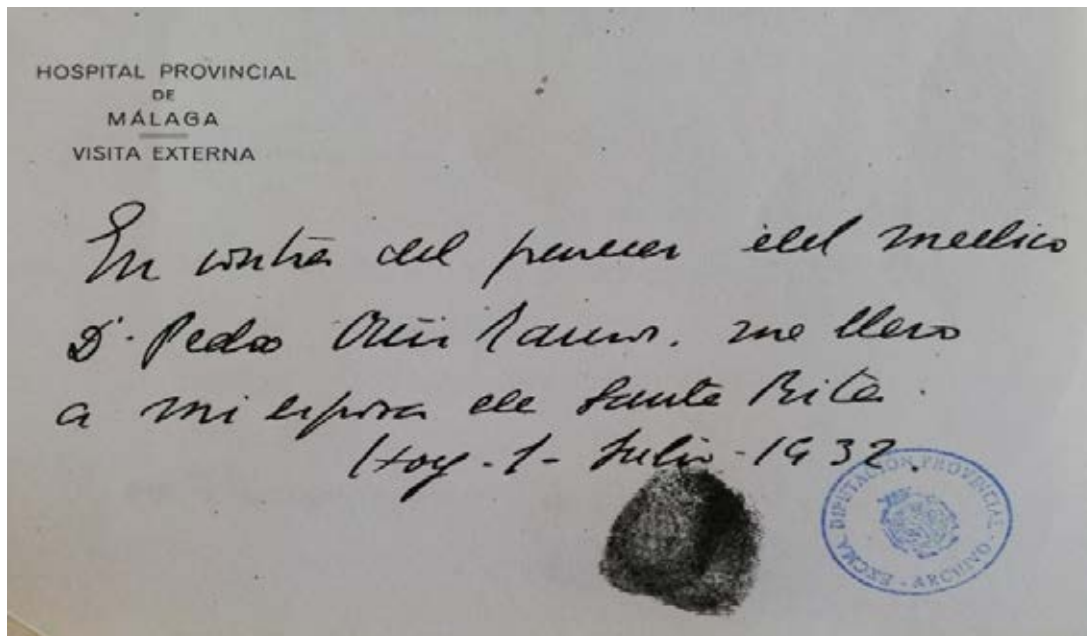 HOSPITAL PROVINCIAL
DE
MÁLAGA
VISITA EXTERNA
En contra del parecer del medico
D. Pedro Ortiz Ramos. me llevo
a mi esposa de Santa Rita.
Hoy - 1 - Julio - 1932.
EXCMA. DIPUTACION PROVINCIAL - ARCHIVO -